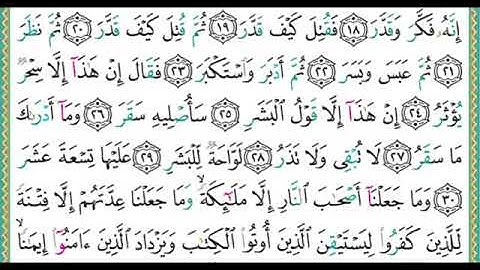 إِنَّهُۥ فَكَّرَ وَقَدَّرَ ۝١٨ فَقُتِلَ كَيْفَ قَدَّرَ ۝١٩ ثُمَّ قُتِلَ كَيْفَ قَدَّرَ ۝٢٠ ثُمَّ نَظَرَ
۝٢١ ثُمَّ عَبَسَ وَبَسَرَ ۝٢٢ ثُمَّ أَدْبَرَ وَٱسْتَكْبَرَ ۝٢٣ فَقَالَ إِنْ هَٰذَآ إِلَّا سِحْرٌ
يُؤْثَرُ ۝٢٤ إِنْ هَٰذَآ إِلَّا قَوْلُ ٱلْبَشَرِ ۝٢٥ سَأُصْلِيهِ سَقَرَ ۝٢٦ وَمَآ أَدْرَىٰكَ
مَا سَقَرُ ۝٢٧ لَا تُبْقِى وَلَا تَذَرُ ۝٢٨ لَوَّاحَةٌ لِّلْبَشَرِ ۝٢٩ عَلَيْهَا تِسْعَةَ عَشَرَ
۝٣٠ وَمَا جَعَلْنَآ أَصْحَٰبَ ٱلنَّارِ إِلَّا مَلَٰٓئِكَةً ۙ وَمَا جَعَلْنَا عِدَّتَهُمْ إِلَّا فِتْنَةً
لِّلَّذِينَ كَفَرُوا۟ لِيَسْتَيْقِنَ ٱلَّذِينَ أُوتُوا۟ ٱلْكِتَٰبَ وَيَزْدَادَ ٱلَّذِينَ ءَامَنُوٓا۟ إِيمَٰنًا ۙ